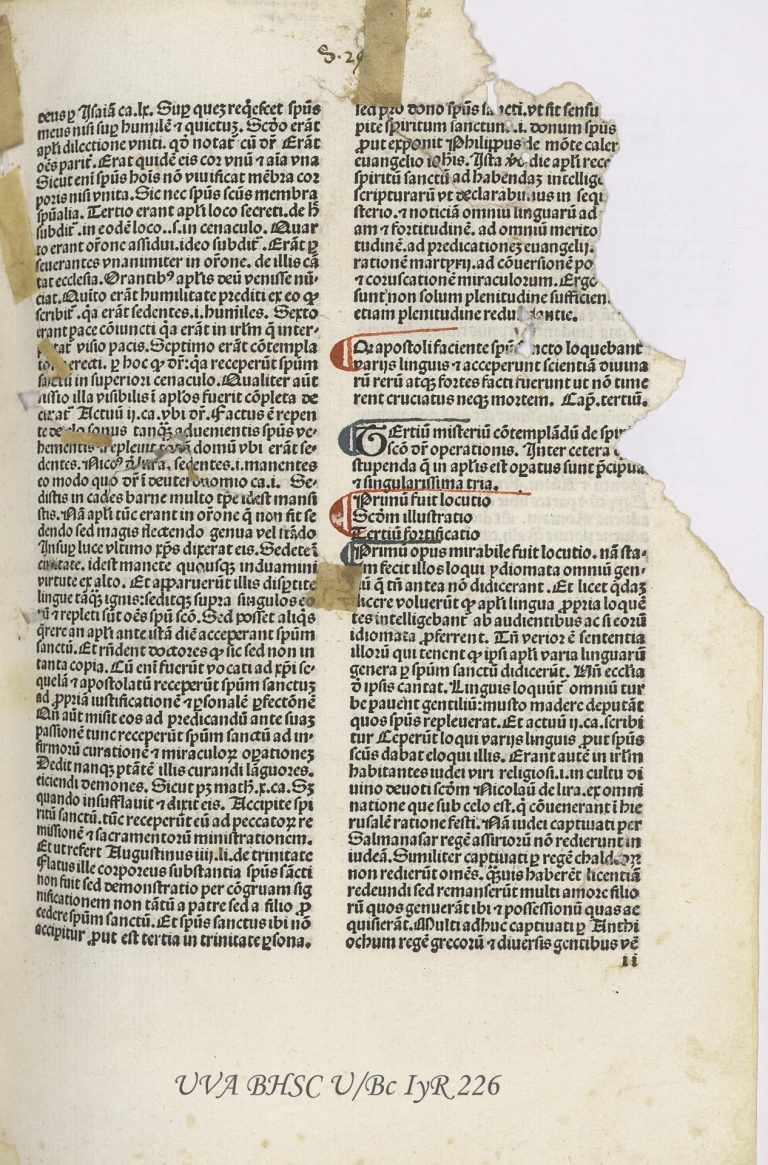 S. 29
deus ꝑ Isaiā ca.lx. Suꝑ quez reqͥescet spūs
meus nisi suꝑ humilē ⁊ quietuꝫ. Scḋo erāt
apľi dilectione vniti. qḋ notat̄ cū dr̄ Erāt
oēs parit̄. Erat quidē eis cor vnū ⁊ aīa vna
Sicut eni spūs hoīs nō viuificat mēbra cor
poris nisi vnita. Sic nec spūs scūs membra
spūalia. Tertio erant apľi loco secreti. de h̄
subdit̄. in eodē loco..s.in cenaculo. Quar
to erant or̄one assidui. ideo subdit̄. Erāt ꝑ
seuerantes vnanimiter in or̄one. de illis cā
tat ecclesia. Orantibꝰ apľis deū venisse nū-
ciat. Quīto erāt humilitate prediti ex eo ꝙ
scribit̄. qa erāt sedentes.i.humiles. Sexto
erant pace cōiuncti qa erāt in irľm q̄ inter-
visio pacis. Septimo erant cōtempla
erecti. ꝑ hoc ꝙ dr̄: qa receperūt spūm
sanctū in superiori cenaculo. Qualiter aūt
missio illa visibilis ī apľos fuerit cōpleta de
clarat̄ Actuū ii.ca.vbi dr̄. Factus ē repen
te de sonus tanqꝫ aduenientis spūs ve-
hementis ⁊ repleuit domū vbi erāt se-
dentes. Nico de lira. sedentes.i.manentes
eo modo quo dr̄ ī deuteronomio ca.i. Se-
distis in cades barne multo tꝑe idest mansi
stis. Nā apľi tūc erant in or̄one q̄ non fit se
dendo sed magis flectendo genua vel stādo
Insuꝑ luce vltimo xp̄s dixerat eis. Sedete ī
ciuitate. idest manete quousqꝫ induamini
virtute ex alto. Et apparuerūt illis disptite
lingue tāqꝫ ignis: seditqꝫ supra singulos eo
rū ⁊ repleti sūt oēs spū scō. Sed posset aliqs
q̄rere an apľi ante istā diē acceperant spūm
sanctū. Et rn̄dent doctores ꝙ sic sed non in
tanta copia. Cū enī fuerūt vocati ad xp̄i se-
quelā ⁊ apostolatū receperūt spūm sanctuꝫ
ad ꝓpria iustificationē ⁊ ꝑsonalē ꝑfectōnē
Qn̄ aūt misit eos ad predicandū ante suaꝫ
passionē tunc receperūt spūm sanctū ad in-
firmorū curationē ⁊ miraculoꝝ oꝑationeꝫ
Dedit nanqꝫ ptātē illis curandi lāguores.
eiciendi demones. Sicut pꝫ math.x.ca. Sꝫ
quando insufflauit ⁊ dixit eis. Accipite spi
ritū sanctū. tūc receperūt eū ad peccatoꝝ re
missionē ⁊ sacramentorū ministrationem.
Et vt refert Augustinus iiii.li.de trinitate
Flatus ille corporeus substantia spūs sācti
non fuit sed demonstratio per cōgruam sig
nificationem non tātū a patre sed a filio ꝓ
cedere spūm sanctū. Et spūs sanctus ibi nō
accipitur ꝓut est tertia in trinitate ꝑsona.
sed pro dono spūs sancti. vt sit sensu
pite spiritum sanctum .i. donum spūs
ꝓut exponit Philippus de mōte caler
euangelio iohis. Ista vo die apľi rece
spiritū sanctū ad habendaꝫ intellige
scripturarū vt declarabimus in seq
sterio. ⁊ noticiā omniū linguarū ad
am ⁊ fortitudinē. ad omniū merito
tudinē. ad predicationeꝫ euangelij.
rationē martyrij. ad cōuersionē po
⁊ coruscationē miraculorum. Ergo
sunt non solum plenitudine sufficien
etiam plenitudine redundantie.
Or apostoli faciente spū sancto loquebant̄
varijs linguis ⁊ acceperunt scientiā diuina
rū rerū atqꝫ fortes facti fuerunt vt nō time
rent cruciatus neqꝫ mortem. Cap. tertiū.
TErtiū misteriū cōtemplādū de spū
scō dr̄ operationis. Inter cetera
stupenda q̄ in apľis est oꝑatus sunt pͥncipua
⁊ singularissima tria.
Primū fuit locutio
Scḋm illustratio
Tertiū fortificatio
Primū opus mirabile fuit locutio. nā sta-
tim fecit illos loqui ydiomata omniū gen-
tiū q̄ tn̄ antea nō didicerant. Et licet qdaꝫ
dicere voluerūt ꝙ apľi lingua ꝓpria loquē
tes intelligebant̄ ab audientibus ac si eorū
idiomata ꝓferrent. Tn̄ verior ē sententia
illorū qui tenent ꝙ ipsi apľi varia linguarū
genera ꝑ spūm sanctū didicerūt. Vn̄ ecclīa
ḋ ipsis cantat. Linguis loquūt̄ omniū tur
be pauent gentiliū: musto madere deputāt
quos spūs repleuerat. Et actuū ii.ca.scribi
tur Ceperūt loqui varijs linguis ꝓut spūs
scūs dabat eloqui illis. Erant autē in irľm
habitantes iudei viri religiosi.i.in cultu di
uino deuoti scḋm Nicolaū de lira. ex omni
natione que sub celo est. q̄ cōuenerant ī hie
rusalē ratione festi. Nā iudei captiuati per
Salmanasar regē assiriorū nō redierunt in
iudeā. Similiter captiuati ꝑ regē chaldeoꝝ
non redierūt omēs. qꝫuis haberēt licentiā
redeundi sed remanserūt multi amore filio
rū quos genuerāt ibi ⁊ possessionū quas ac
quisierāt. Multi adhuc captiuati ꝑ Anthi
ochum regē grecorū ⁊ diuersis gentibus vē
ii
UVA BHSC U/Bc IyR 226